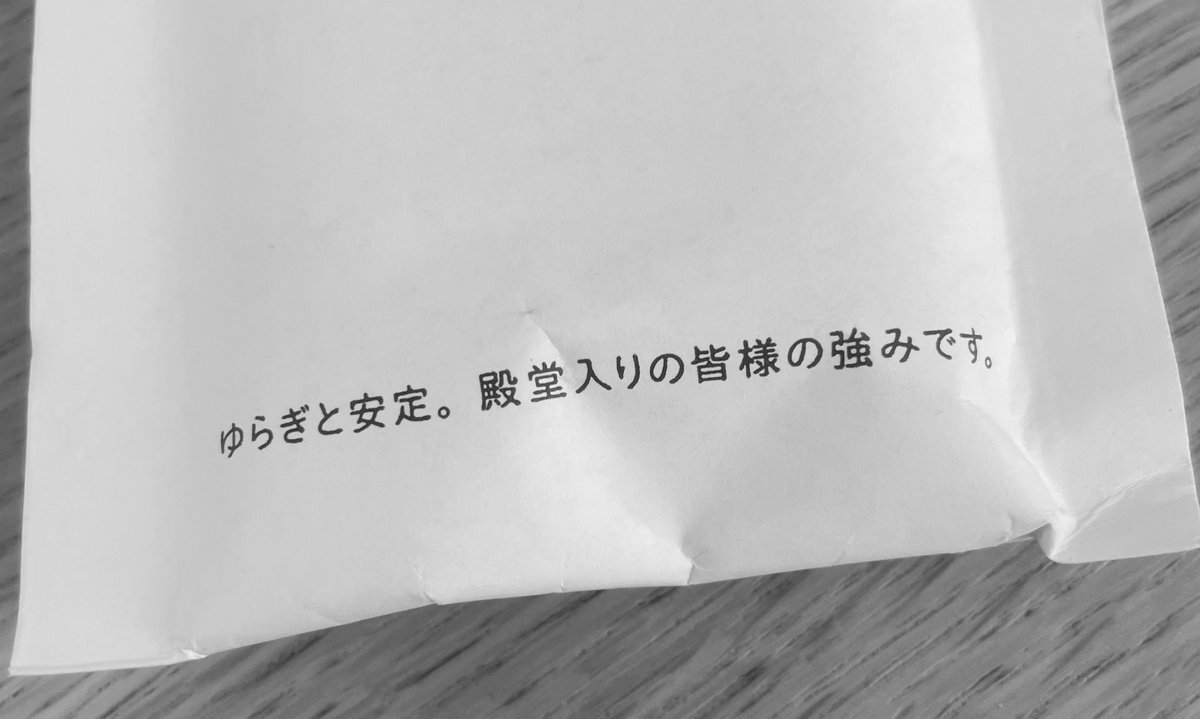 ゆらぎと安定。殿堂入りの皆様の強みです。